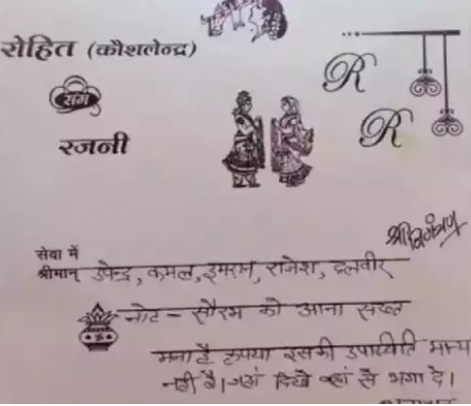 रोहित (कौशलेन्द्र)
संग
रजनी
R
R
श्री निमंत्रण
सेवा में
श्रीमान् उपेन्द्र, कमल, इमरान, राजेश, दलवीर
नोट - सौरभ को आना सख्त
मना है कृपया इसकी उपस्थिति मान्य
नहीं है। जहां दिखे वहां से भगा दे।